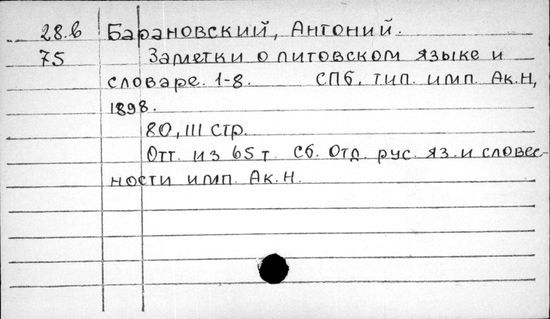 28.б Барановский, Антоний.
75 Заметки о литовском языке и
словаре. 1-8. СПб, тип. имп. Ак.Н,
1898.
80, III стр.
Отт. из 65 т. Сб. Отд. рус. яз. и словес-
ности имп. Ак.Н.